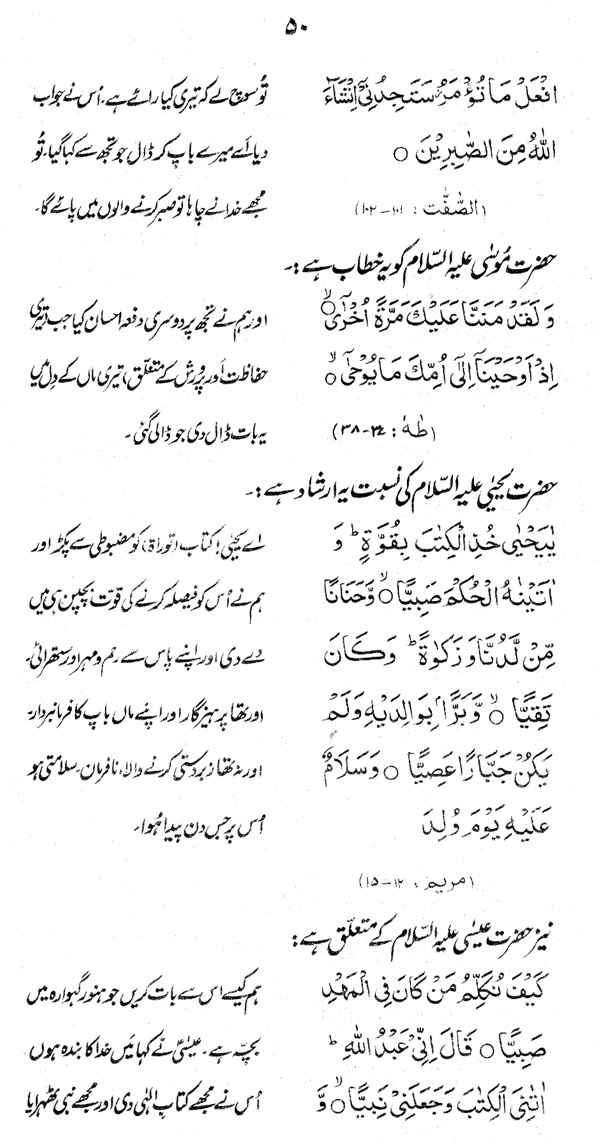 ۵۰
افْعَلْ مَا تُؤْمَرُ سَتَجِدُنِيْٓ اِنْشَآءَ
اللّٰهُ مِنَ الصّٰبِرِيْنَ ○
(الصّٰفّٰت : ۱۰۱-۱۰۲)
تُو سوچ لے کہ تیری کیا رائے ہے، اُس نے جواب
دیا اَے میرے باپ کر ڈال جو تجھ سے کہا گیا۔ تُو
مجھے خدا نے چاہا تو صبر کرنے والوں میں پائے گا۔
حضرت مُوسٰی علیہ السّلام کو یہ خطاب ہے:۔
وَلَقَدْ مَنَنَّا عَلَيْكَ مَرَّةً اُخْرٰٓى ○ۙ
اِذْ اَوْحَيْنَآ اِلٰٓى اُمِّكَ مَا يُوْحٰٓى ○ۙ
(طٰهٰ : ۳۷-۳۸)
اور ہم نے تجھ پر دوسری دفعہ احسان کیا جب (تیری
حفاظت اَور پرورش کے متعلّق) تیری ماں کے دِل میں
یہ بات ڈال دی جو ڈالی گئی۔
حضرت یحیٰی علیہ السّلام کی نسبت یہ ارشاد ہے:۔
يٰيَحْيٰى خُذِ الْكِتٰبَ بِقُوَّةٍ ؕ وَ
اٰتَيْنٰهُ الْحُكْمَ صَبِيًّا ○ۙ وَّحَنَانًا
مِّنْ لَّدُنَّا وَزَكٰوةً ؕ وَكَانَ
تَقِيًّا ○ۙ وَّبَرًّا بِوَالِدَيْهِ وَلَمْ
يَكُنْ جَبَّارًا عَصِيًّا ○ وَسَلَامٌ
عَلَيْهِ يَوْمَ وُلِدَ
(مریم : ۱۲-۱۵)
اَے یحیٰی! کتاب (توراة) کو مضبوطی سے پکڑ اور
ہم نے اُس کو فیصلہ کرنے کی قوت بچپن ہی میں
دے دی اور اپنے پاس سے رحم و مہر اور ستھرائی۔
اور تھا پرہیزگار اور اپنے ماں باپ کا فرمانبردار۔
اور نہ تھا زبردستی کرنے والا، نافرمان۔ سلامتی ہو
اُس پر جس دن پیدا ہُوا۔
نیز حضرت عیسٰی علیہ السّلام کے متعلّق ہے:
كَيْفَ نُكَلِّمُ مَنْ كَانَ فِي الْمَهْدِ
صَبِيًّا ○ قَالَ اِنِّيْ عَبْدُ اللّٰهِ ؕ
اٰتٰنِيَ الْكِتٰبَ وَجَعَلَنِيْ نَبِيًّا ○ۙ وَّ
ہم کیسے اس سے بات کریں جو ہنوز گہوارہ میں
بچّہ ہے۔ عیسٰیؑ نے کہا مَیں خدا کا بندہ ہوں
اُس نے مجھے کتابِ الٰہی دی اور مجھے نبی ٹھہرایا